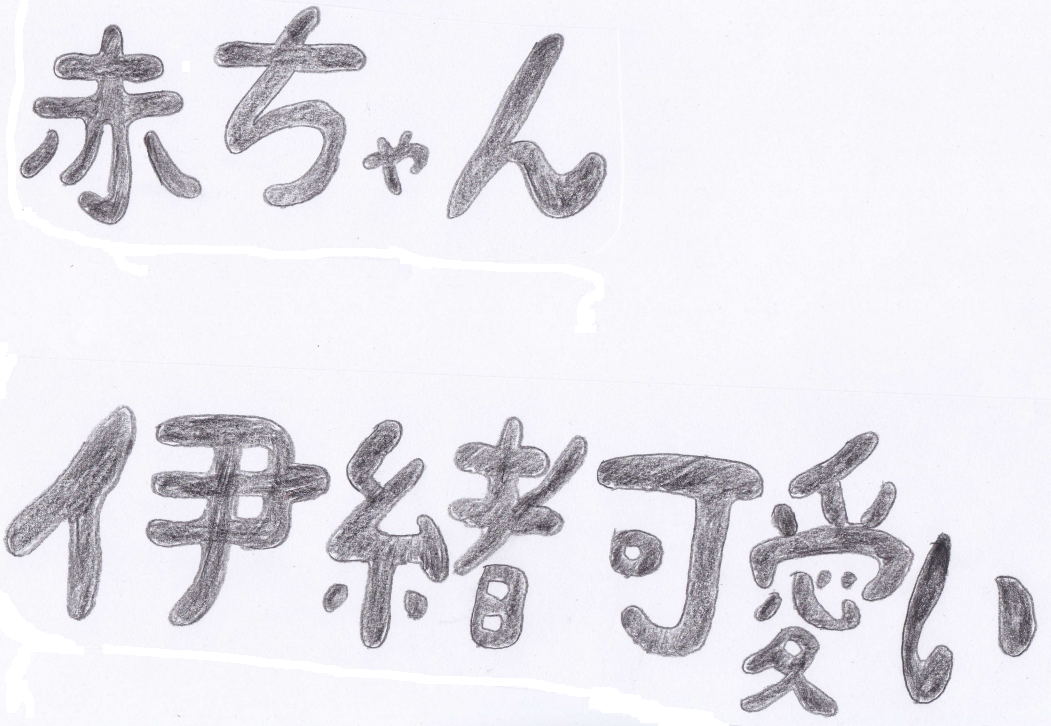 赤ちゃん
伊緒可愛い